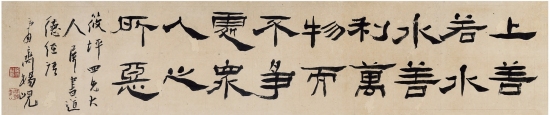 上善
若水
水善
利萬
物而
不爭
處眾
人之
所惡
筱坪四兄大
人屬書道
德經語
楊峴